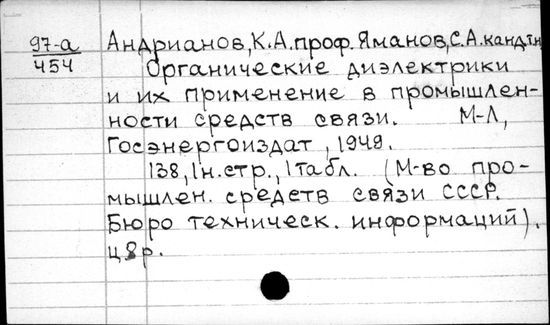 97-а
454
Андрианов, К.А. проф. Яманов, С.А. канд.т.н
Органические диэлектрики
и их применение в промышлен-
ности средств связи. М-Л,
Госэнергоиздат, 1949.
138, 1н.стр., 1табл. (М-во про-
мышлен. средств связи СССР.
Бюро техническ. информаций).
ц 8р.